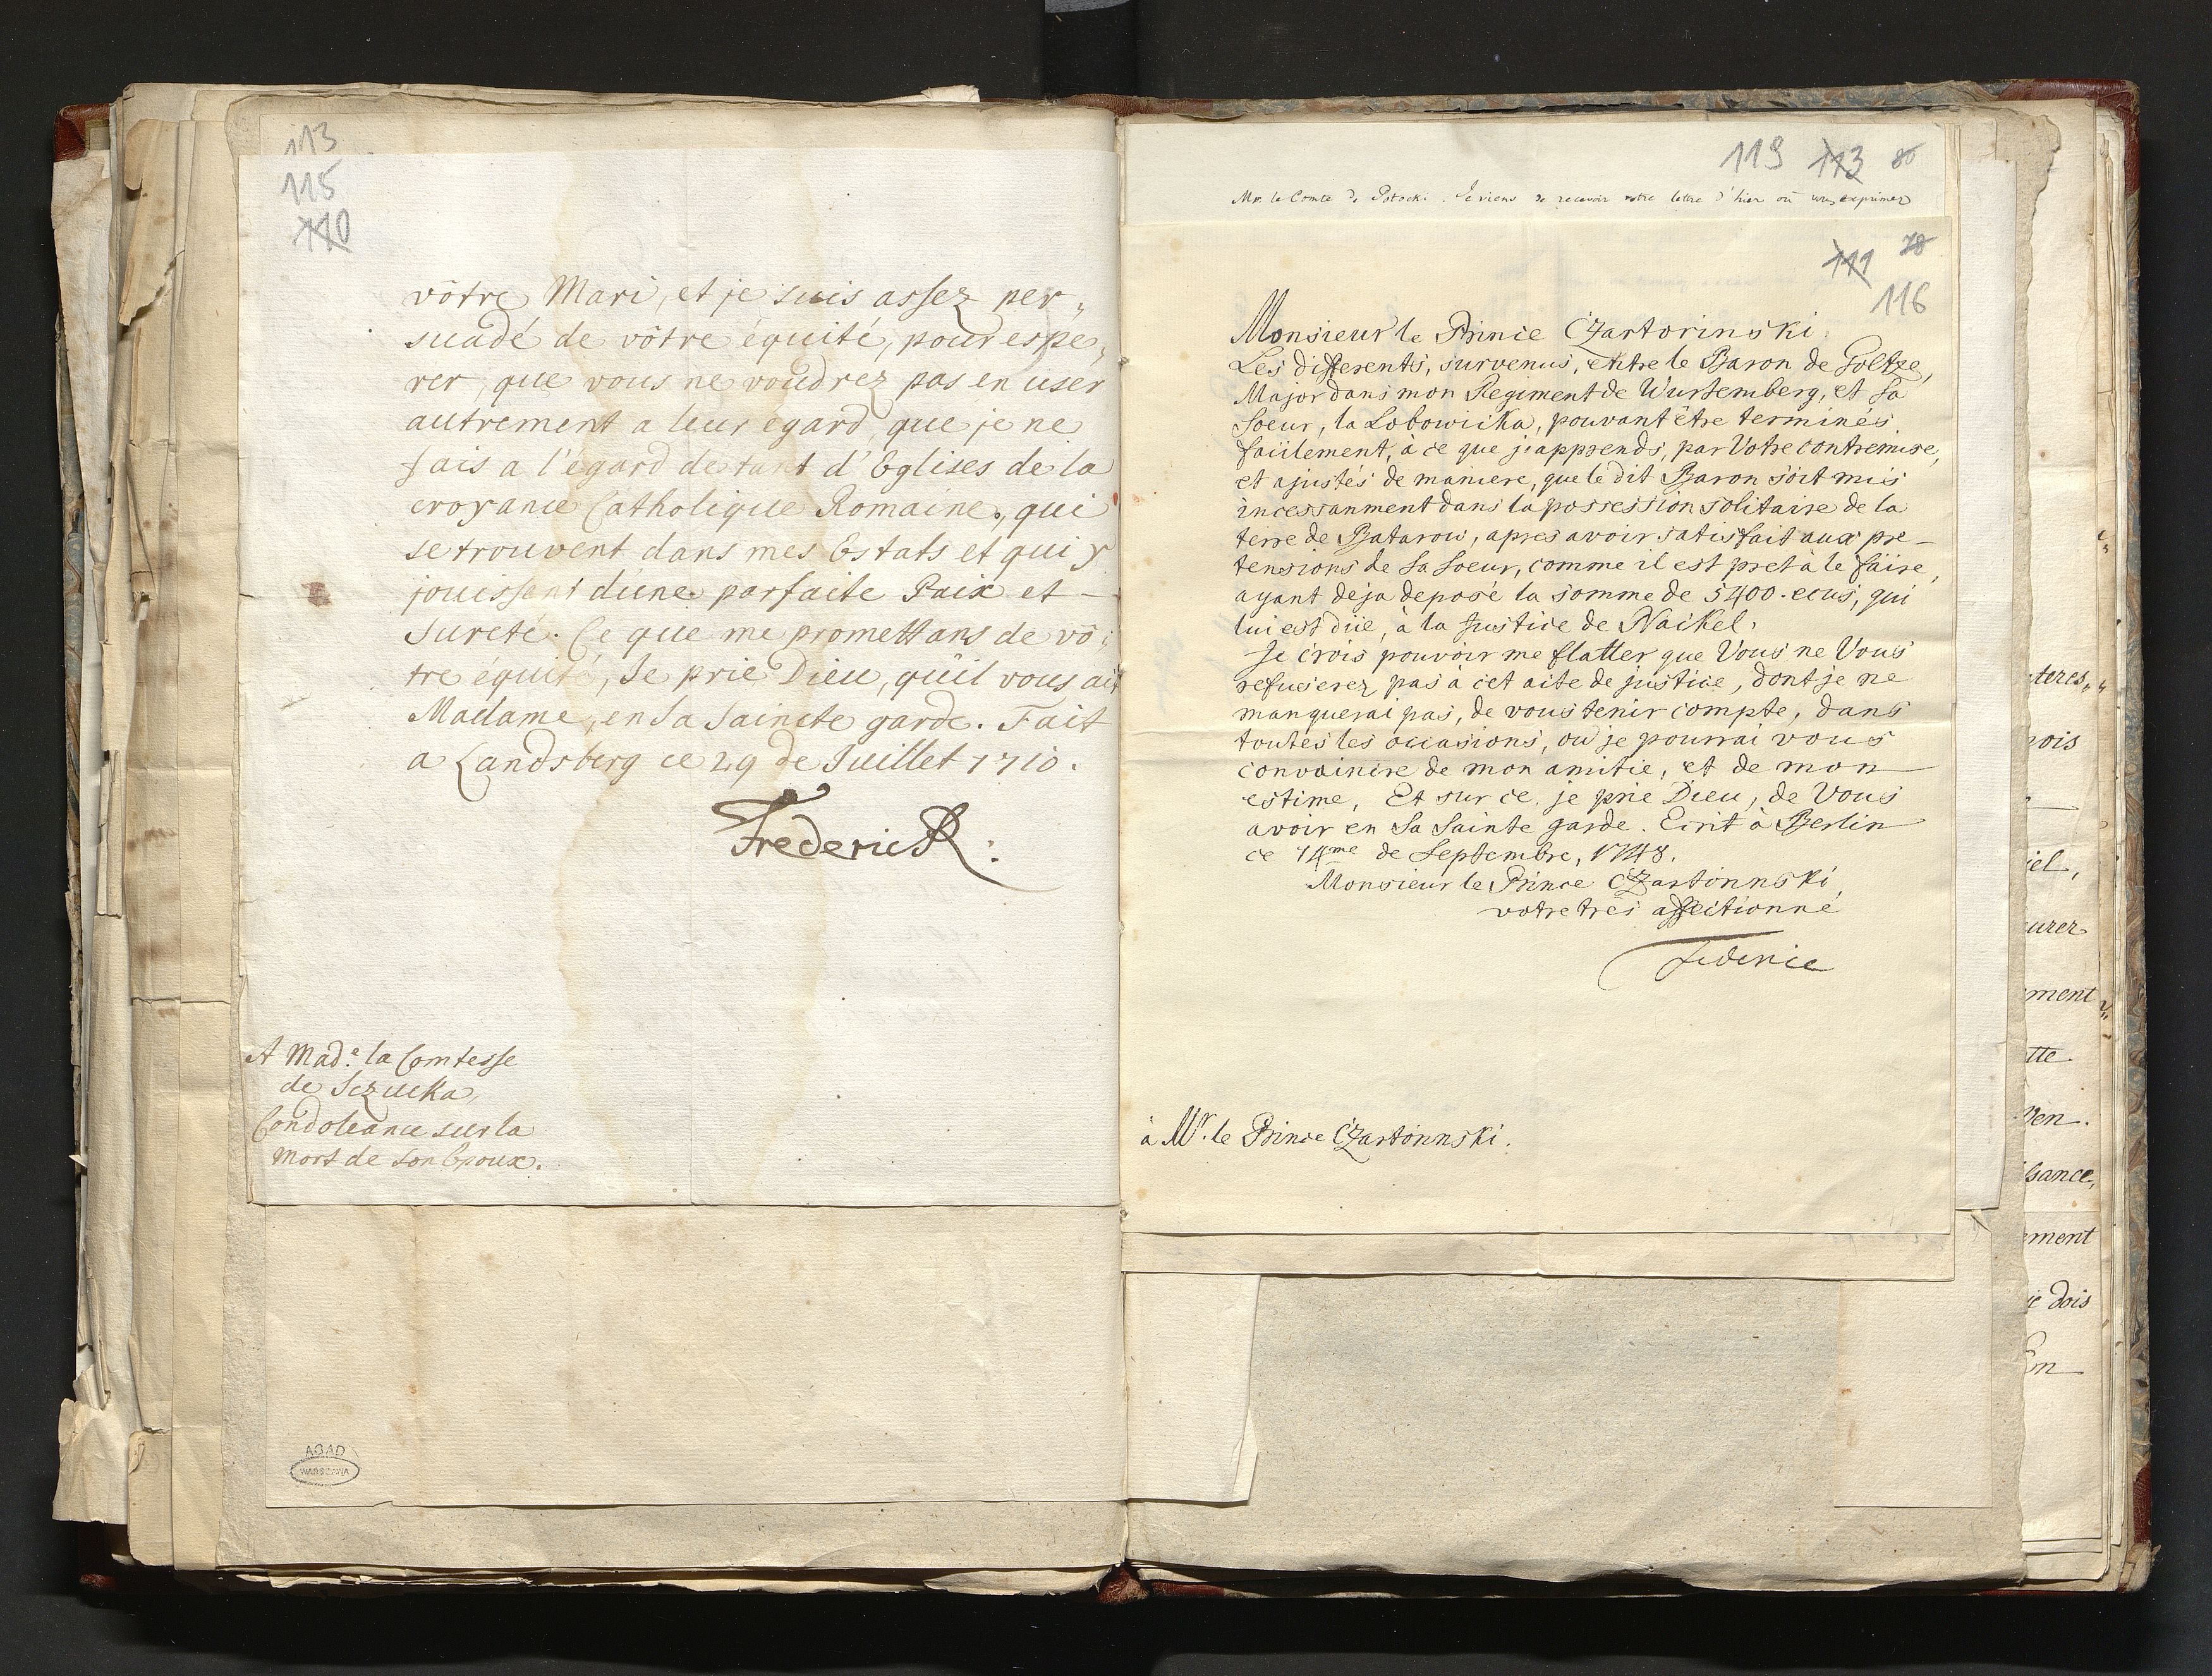 113
115
110
vôtre Mari, et je suis assez per„
suadé de vôtre équité, pour espe„
rer, que vous ne voudrez pas en user
autrement a leur egard, que je ne
fais a l'égard de tant d'Eglises de la
croyance Catholique Romaine, qui
se trouvent dans mes Estats et qui y
jouissent d'une parfaite Paix et —
Sureté. Ce que me promettans de vô„
tre équité, Je prie Dieu, qu'il vous ait
Madame, en Sa Saincte garde. Fait
a Landsberg ce 29 de Juillet 1710.
Frederic R.
A Mad.e la Comtesse
de Sczucka,
Condoleance sur la
mort de son Epoux.
AGAD
WARSZAWA
119 113 80
Mr. le Comte de Potocki. Je viens de recevoir votre lettre d'hier où vous exprimez
111 78
116
Monsieur le Prince Czartorinski.
Les differents, survenus, entre le Baron de Goltze,
Major dans mon Regiment de Wurtemberg, et Sa
Soeur, la Lobowicka, pouvant être terminés
facilement, à ce que j'apprends, par Votre contremise,
et ajustés de maniere, que le dit Baron soit mis
incessanment dans la possession solitaire de la
terre de Batarow, apres avoir satisfait aux pre-
tensions de Sa Soeur, comme il est pret à le faire,
ayant deja deposé la somme de 5400. ecus, qui
lui est düe, à la Justice de Nackel.
Je crois pouvoir me flatter que Vous ne Vous
refuserez pas à cet acte de justice, dont je ne
manquerai pas, de vous tenir compte, dans
toutes les occasions, ou je pourrai vous
convaincre de mon amitie, et de mon
estime, Et sur ce, je prie Dieu, de Vous
avoir en Sa Sainte garde. Ecrit à Berlin
ce 14me de Septembre, 1748.
Monsieur le Prince Czartorinski,
votre tres affectionné
Federic
à Mr. le Prince Czartorinski.
teres„
iel,
urer
ment
tte
sance,
ment
dois
En